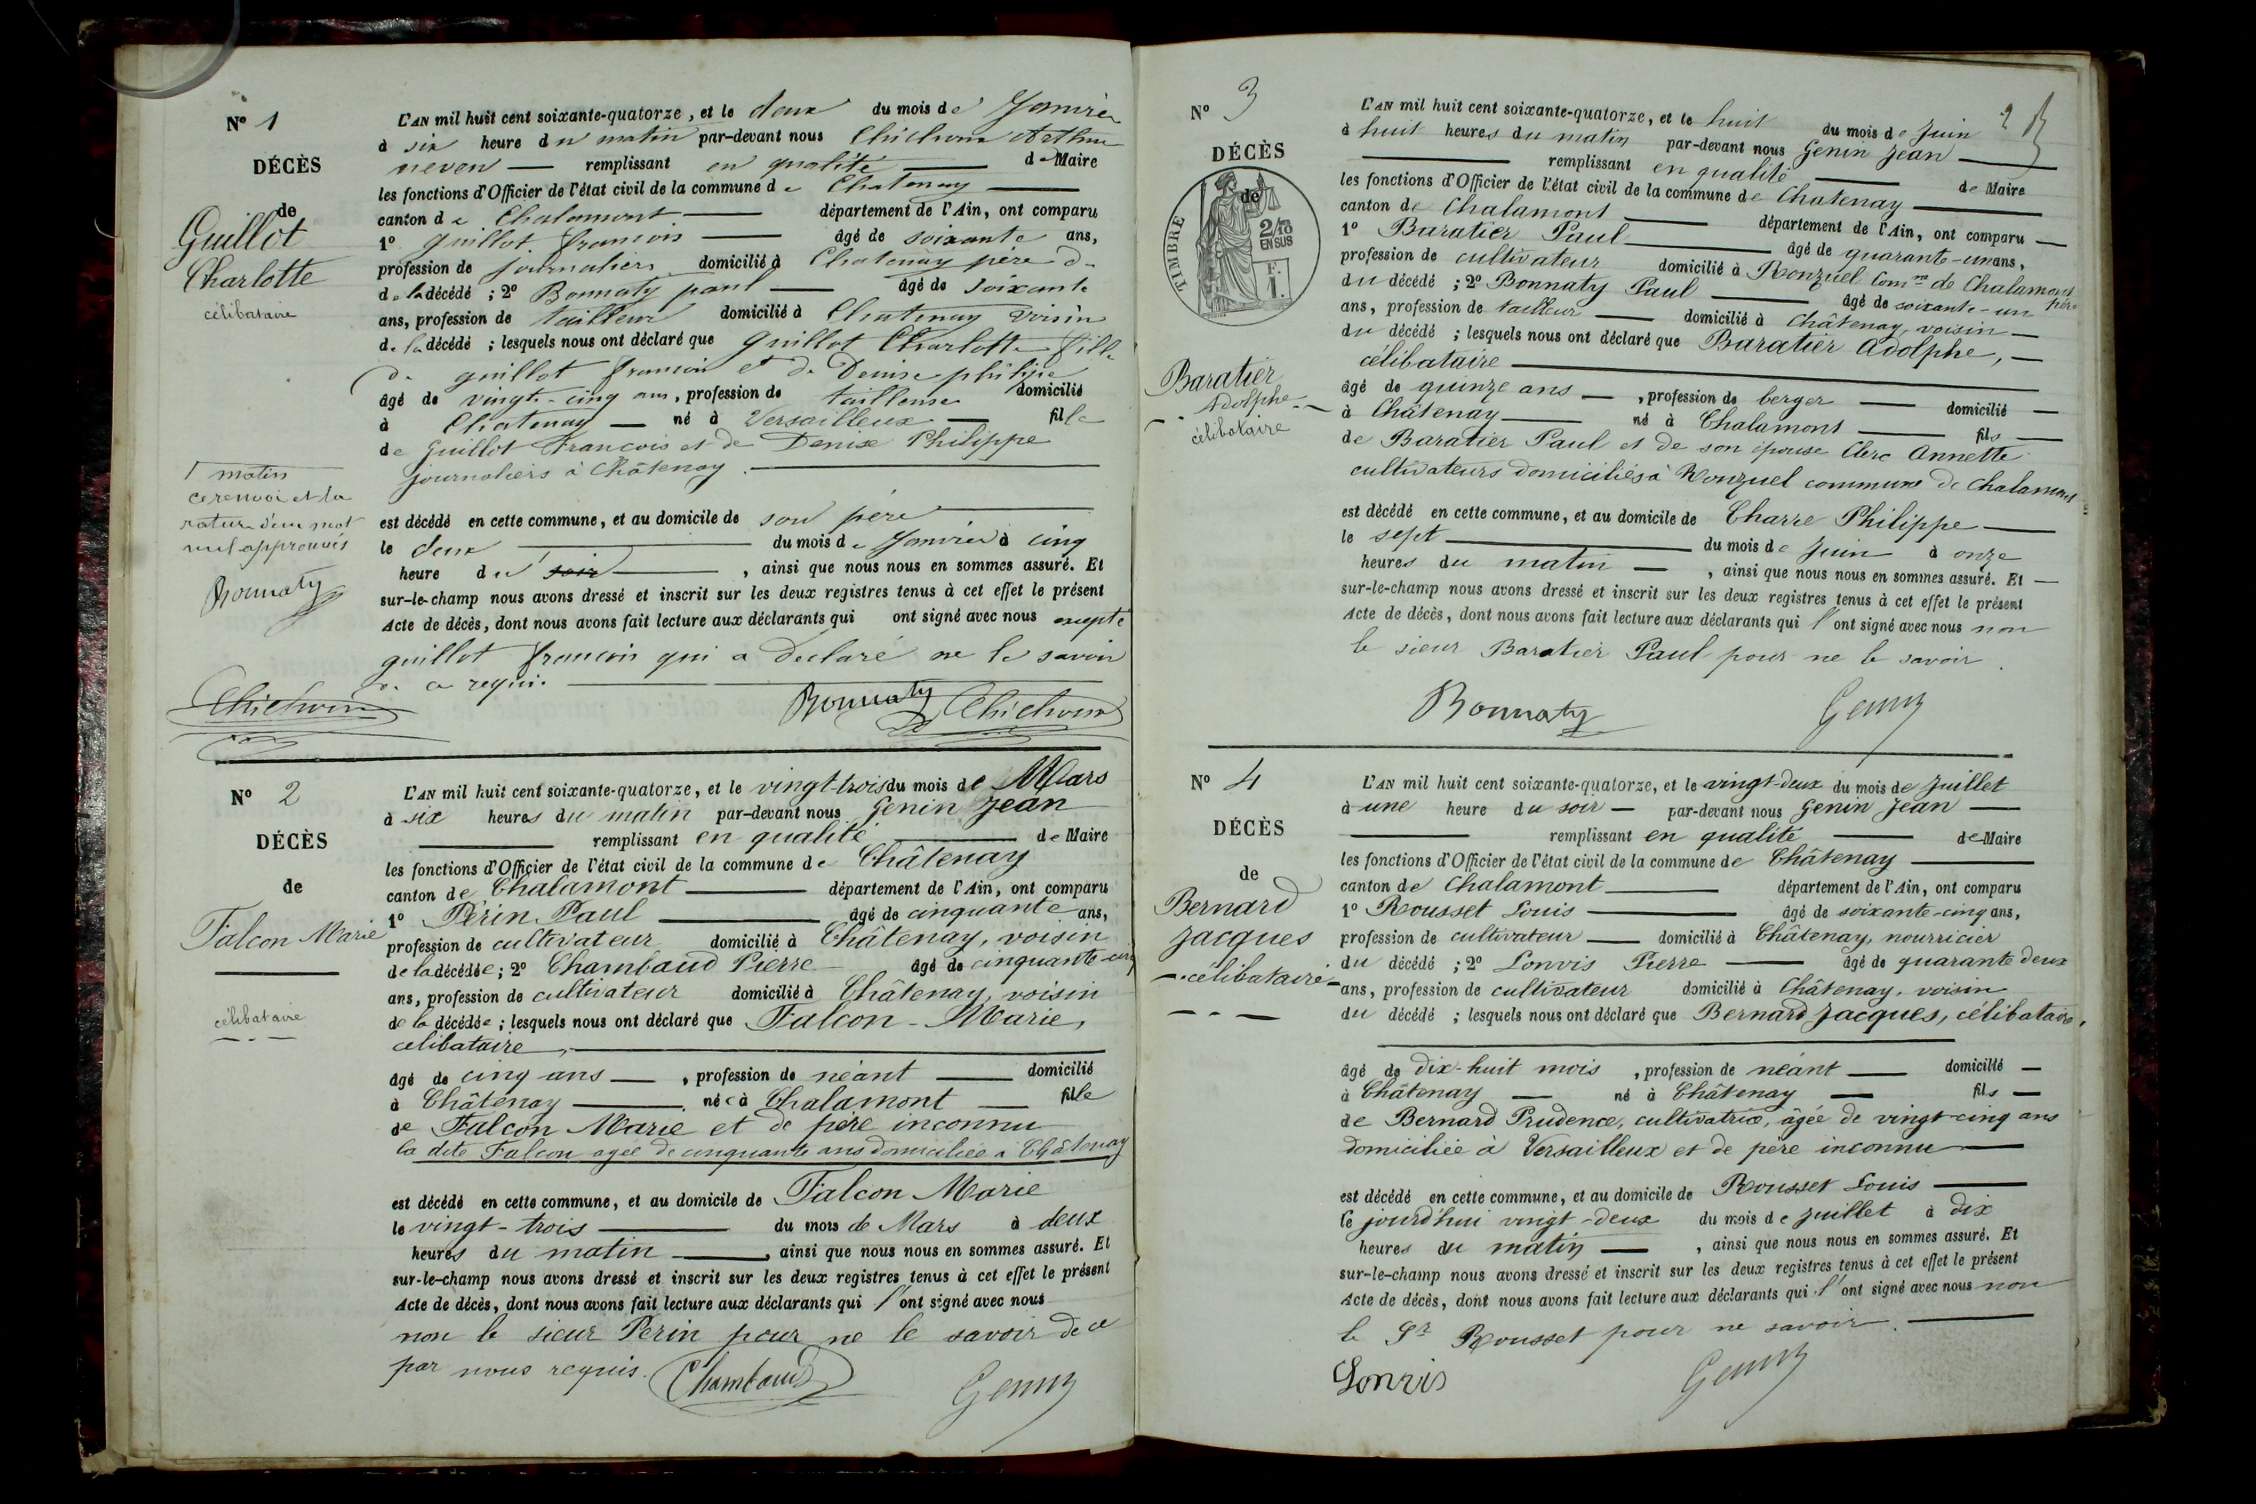 N° 1
DÉCÈS
de
Guillot
Charlotte
célibataire
L'AN mil huit cent soixante-quatorze, et le deux du mois de Janvier
à six heure du matin par-devant nous Chichoux Arthur
neveu — remplissant en qualité — de Maire
les fonctions d'Officier de l'état civil de la commune de Chatenay —
canton de Chalamont — département de l'Ain, ont comparu
1° Guillot françois — âgé de soixante ans,
profession de journalier domicilié à Chatenay père d
de la décédé ; 2° Bonnaty paul — âgé de soixante
ans, profession de tailleur domicilié à Chatenay voisin
de la décédé ; lesquels nous ont déclaré que Guillot Charlotte fille
de guillot françois et de Denise philippe
âgé de vingt-cinq ans, profession de tailleuse domicilié
à Chatenay — né à Versailleux — fille
de Guillot François et de Denise Philippe
journaliers à Châtenay. —
est décédé en cette commune, et au domicile de son père —
le deux — du mois de Janvier à cinq
heure du soir —, ainsi que nous nous en sommes assuré. Et
sur-le-champ nous avons dressé et inscrit sur les deux registres tenus à cet effet le présent
Acte de décès, dont nous avons fait lecture aux déclarants qui ont signé avec nous excepté
guillot françois qui a déclaré ne le savoir
de ce requi. —
matin
ce renvoi et la
rature d'un mot
nul approuvés
Bonnaty
Chichoux
Bonnaty Chichoux
N° 2
DÉCÈS
de
Falcon Marie
célibataire
L'AN mil huit cent soixante-quatorze, et le vingt-trois du mois de Mars
à six heures du matin par-devant nous Genin Jean
— remplissant en qualité — de Maire
les fonctions d'Officier de l'état civil de la commune de Châtenay
canton de Chalamont — département de l'Ain, ont comparu
1° Périn Paul — âgé de cinquante ans,
profession de cultivateur domicilié à Châtenay, voisin
de la décédée ; 2° Chambaud Pierre âgé de cinquante-cinq
ans, profession de cultivateur domicilié à Châtenay, voisin
de la décédée ; lesquels nous ont déclaré que Falcon-Marie,
célibataire, —
âgé de cinq ans —, profession de néant — domicilié
à Châtenay — née à Chalamont — fille
de Falcon Marie et de père inconnu
la dite Falcon agée de cinquante ans domiciliée à Châtenay
est décédé en cette commune, et au domicile de Falcon Marie
le vingt-trois — du mois de Mars à deux
heures du matin —, ainsi que nous nous en sommes assuré. Et
sur-le-champ nous avons dressé et inscrit sur les deux registres tenus à cet effet le présent
Acte de décès, dont nous avons fait lecture aux déclarants qui l'ont signé avec nous
non le sieur Périn pour ne le savoir de ce
par nous requis. Chambaud Genin
2
N° 3
DÉCÈS
de
TIMBRE
2/10
EN SUS
F.
1.
Baratier
Adolphe
célibataire
L'AN mil huit cent soixante-quatorze, et le huit du mois de Juin
à huit heures du matin par-devant nous Genin Jean —
— remplissant en qualité — de Maire
les fonctions d'Officier de l'état civil de la commune de Chatenay —
canton de Chalamont — département de l'Ain, ont comparu —
1° Baratier Paul — âgé de quarante-un ans,
profession de cultivateur domicilié à Ronzuel Com.ne de Chalamont
père
du décédé ; 2° Bonnaty Paul — âgé de soixante-un
ans, profession de tailleur — domicilié à Châtenay, voisin —
du décédé ; lesquels nous ont déclaré que Baratier Adolphe, —
célibataire —
âgé de quinze ans —, profession de berger — domicilié —
à Châtenay — né à Chalamont — fils —
de Baratier Paul et de son épouse Clerc Annette
cultivateurs domiciliés à Ronzuel commune de Chalamont
est décédé en cette commune, et au domicile de Charre Philippe —
le sept — du mois de Juin à onze
heures du matin —, ainsi que nous nous en sommes assuré. Et —
sur-le-champ nous avons dressé et inscrit sur les deux registres tenus à cet effet le présent
Acte de décès, dont nous avons fait lecture aux déclarants qui l'ont signé avec nous non
le sieur Baratier Paul pour ne le savoir.
Bonnaty Genin
N° 4
DÉCÈS
de
Bernard
Jacques
célibataire
L'AN mil huit cent soixante-quatorze, et le vingt-deux du mois de Juillet
à une heure du soir — par-devant nous Genin Jean —
— remplissant en qualité — de Maire
les fonctions d'Officier de l'état civil de la commune de Châtenay —
canton de Chalamont — département de l'Ain, ont comparu
1° Rousset Louis — âgé de soixante-cinq ans,
profession de cultivateur — domicilié à Châtenay, nourricier
du décédé ; 2° Lonvis Pierre — âgé de quarante deux
ans, profession de cultivateur domicilié à Châtenay, voisin
du décédé ; lesquels nous ont déclaré que Bernard Jacques, célibataire,
âgé de dix-huit mois, profession de néant — domicilié —
à Châtenay — né à Châtenay — fils —
de Bernard Prudence, cultivatrice, âgée de vingt-cinq ans
domiciliée à Versailleux et de père inconnu —
est décédé en cette commune, et au domicile de Rousset Louis —
le jourd'hui vingt-deux du mois de Juillet à dix
heures du matin —, ainsi que nous nous en sommes assuré. Et
sur-le-champ nous avons dressé et inscrit sur les deux registres tenus à cet effet le présent
Acte de décès, dont nous avons fait lecture aux déclarants qui l'ont signé avec nous non
le Sr Rousset pour ne savoir. —
Lonvis Genin